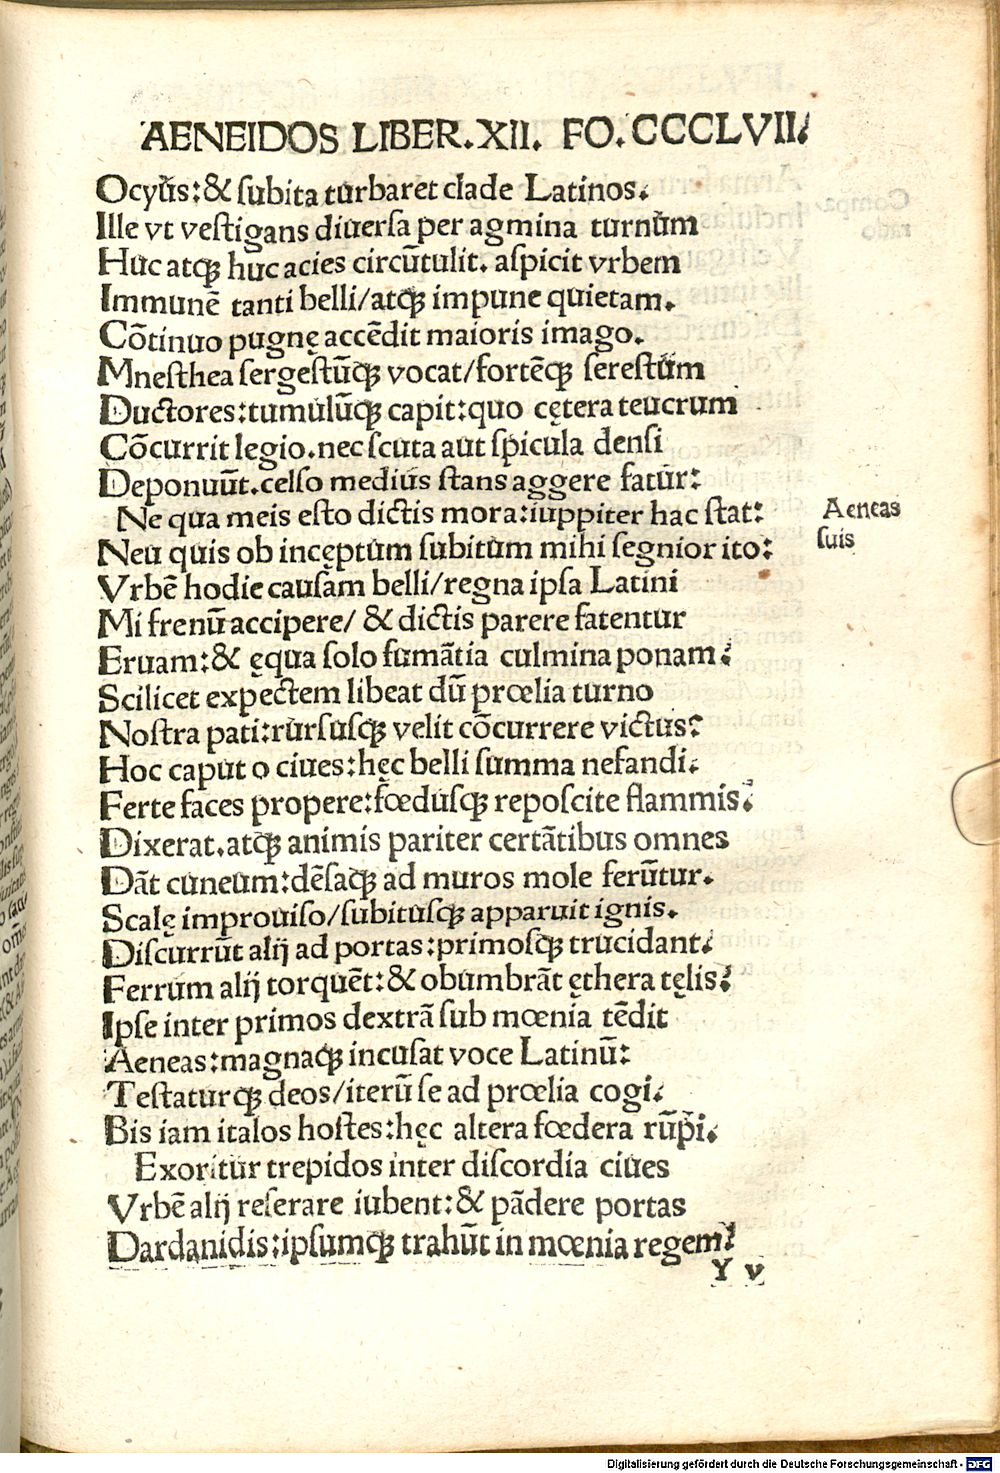 AENEIDOS LIBER.XII. FO.CCCLVII.
Ocyus:& subita turbaret clade Latinos.
Ille vt vestigans diuersa per agmina turnum
Huc atqꝫ huc acies circūtulit. aspicit vrbem
Immunē tanti belli/atqꝫ impune quietam.
Cōtinuo pugnę accēdit maioris imago.
Mnesthea sergestūqꝫ vocat/fortēqꝫ serestum
Ductores:tumulūqꝫ capit:quo cętera teucrum
Cōcurrit legio.nec scuta aut spicula densi
Deponuūt.celso medius stans aggere fatur:
Ne qua meis esto dictis mora:iuppiter hac stat:
Aeneas
suis
Neu quis ob inceptum subitum mihi segnior ito:
Vrbē hodie causam belli/regna ipsa Latini
Mi frenū accipere/ & dictis parere fatentur
Eruam:& ęqua solo fumātia culmina ponam.
Scilicet expectem libeat dū prœlia turno
Nostra pati:rursusqꝫ velit cōcurrere victus:
Hoc caput o ciues:hęc belli summa nefandi.
Ferte faces propere:fœdusqꝫ reposcite flammis.
Dixerat.atqꝫ animis pariter certātibus omnes
Dāt cuneum:dēsaqꝫ ad muros mole ferūtur.
Scalę improuiso/subitusqꝫ apparuit ignis.
Discurrūt alij ad portas:primosqꝫ trucidant.
Ferrum alij torquēt:& obumbrāt ęthera tęlis.
Ipse inter primos dextrā sub mœnia tēdit
Aeneas:magnaqꝫ incusat voce Latinū:
Testaturqꝫ deos/iterū se ad prœlia cogi.
Bis iam italos hostes:hęc altera fœdera rūpi.
Exoritur trepidos inter discordia ciues
Vrbē alij reserare iubent:& pādere portas
Dardanidis:ipsumqꝫ trahūt in mœnia regem.
Y v
Digitalisierung gefördert durch die Deutsche Forschungsgemeinschaft - DFG